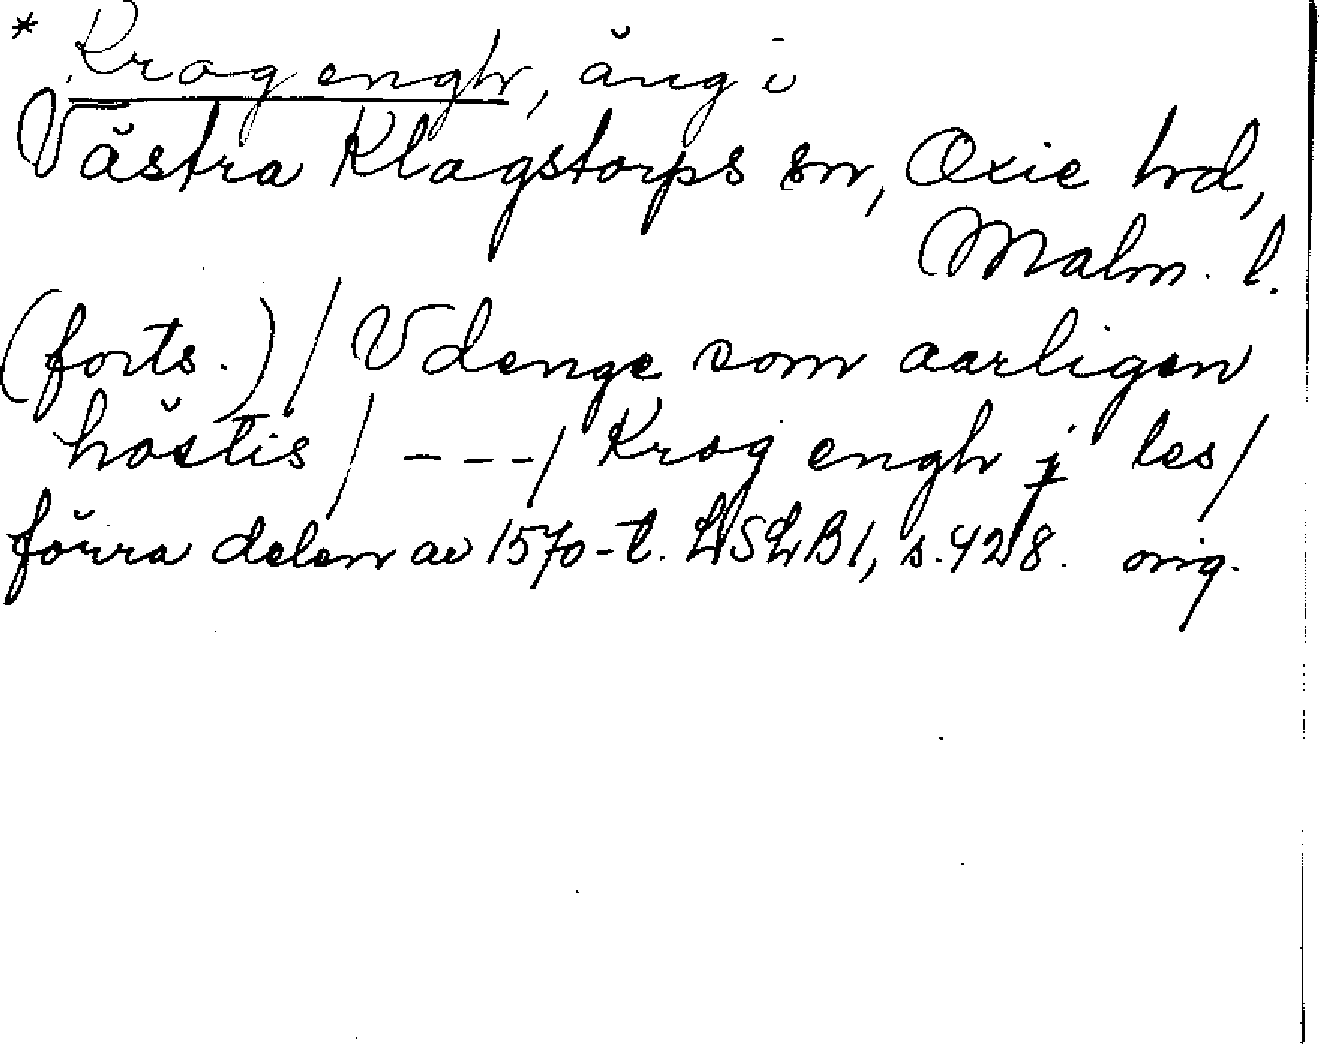 * Krog engh, äng i
Västra Klagstorps sn, Oxie hd,
Malm. l.
(forts.) / Vdenge som aarligen
höstis / - - - / Krog engh j les /
förra delen av 1570-t. LSLB1, s. 428. orig.